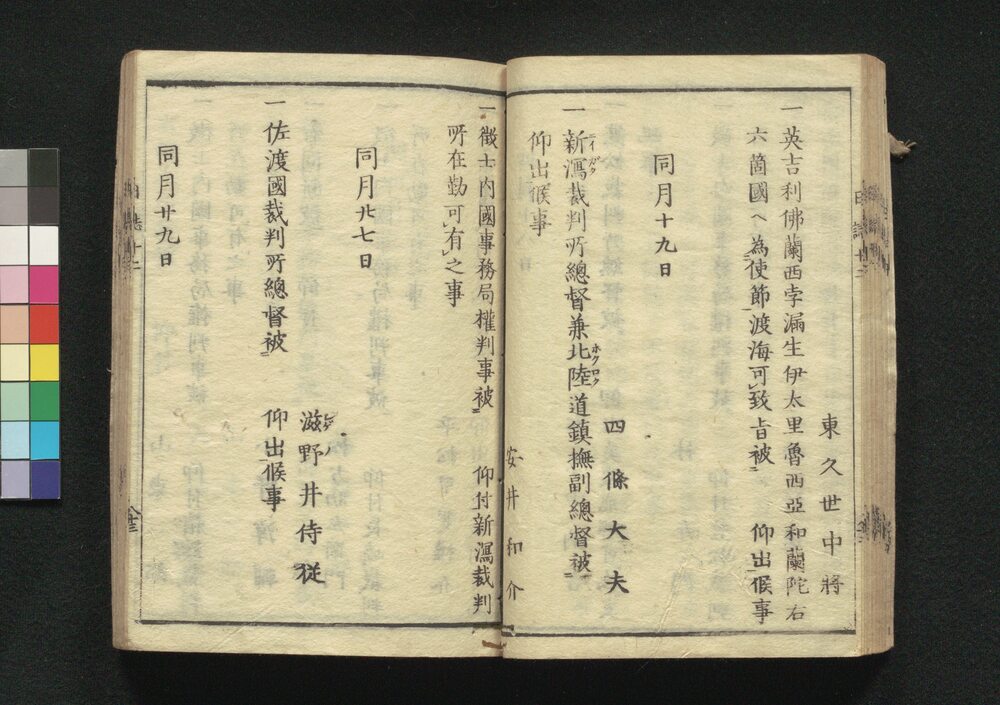 東久世中將
一英吉利佛蘭西孛漏生伊太里魯西亞和蘭陀右
六箇國へ為使節渡海可致旨被 仰出候事
同月十九日
四條大夫
一新瀉裁判所總督兼北陸道鎮撫副總督被
ニイガタ
ホクロク
仰出候事
安井和介
一徴士内國事務局權判事被 仰付新瀉裁判
所在勤可有之事
同月廿七日
滋野井侍従
シゲノ
一佐渡國裁判所總督被 仰出候事
同月廿九日